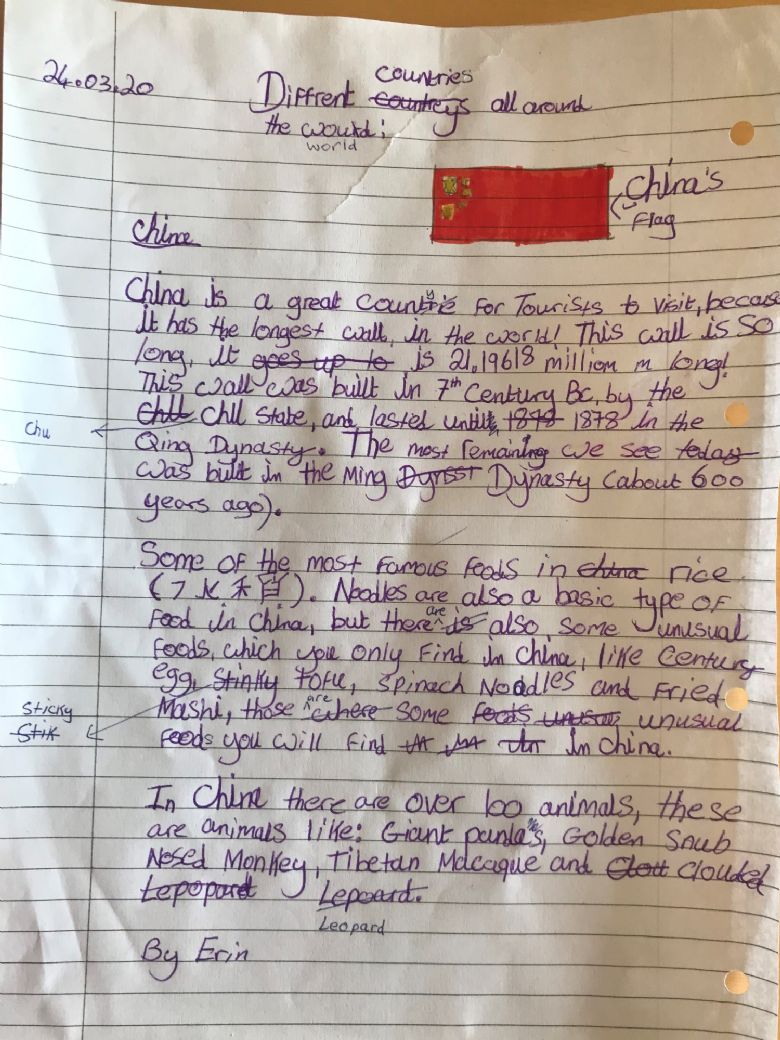 24.03.20
countries
Diffrent countreys all around
the would:
world
China's
Flag
China
China is a great country for Tourists to visit, because
it has the longest wall, in the world! This wall is so
long, it goes up to is 21.19618 million m long!
This wall was built in 7th Century BC, by the
Chu State, and lasted until 1878 1878 in the
Chu
Qing Dynasty. The most remaining we see today
was built in the Ming Dynasty (about 600
years ago).
Some of the most famous foods in china rice
Noodles are also a basic type of
food in China, but there are is also, some unusual
foods, which you only find in China, like Century
egg, Stinky Tofu, Spinach Noodles and Fried
Sticky
Stik
Mashi, those are where some foods unusual unusual
foods you will find in China.
In China there are over 100 animals, these
are animals like: Giant panda's, Golden Snub
Nosed Monkey, Tibetan Macaque and Clouded
Lepopard Lepoard.
Leopard
By Erin